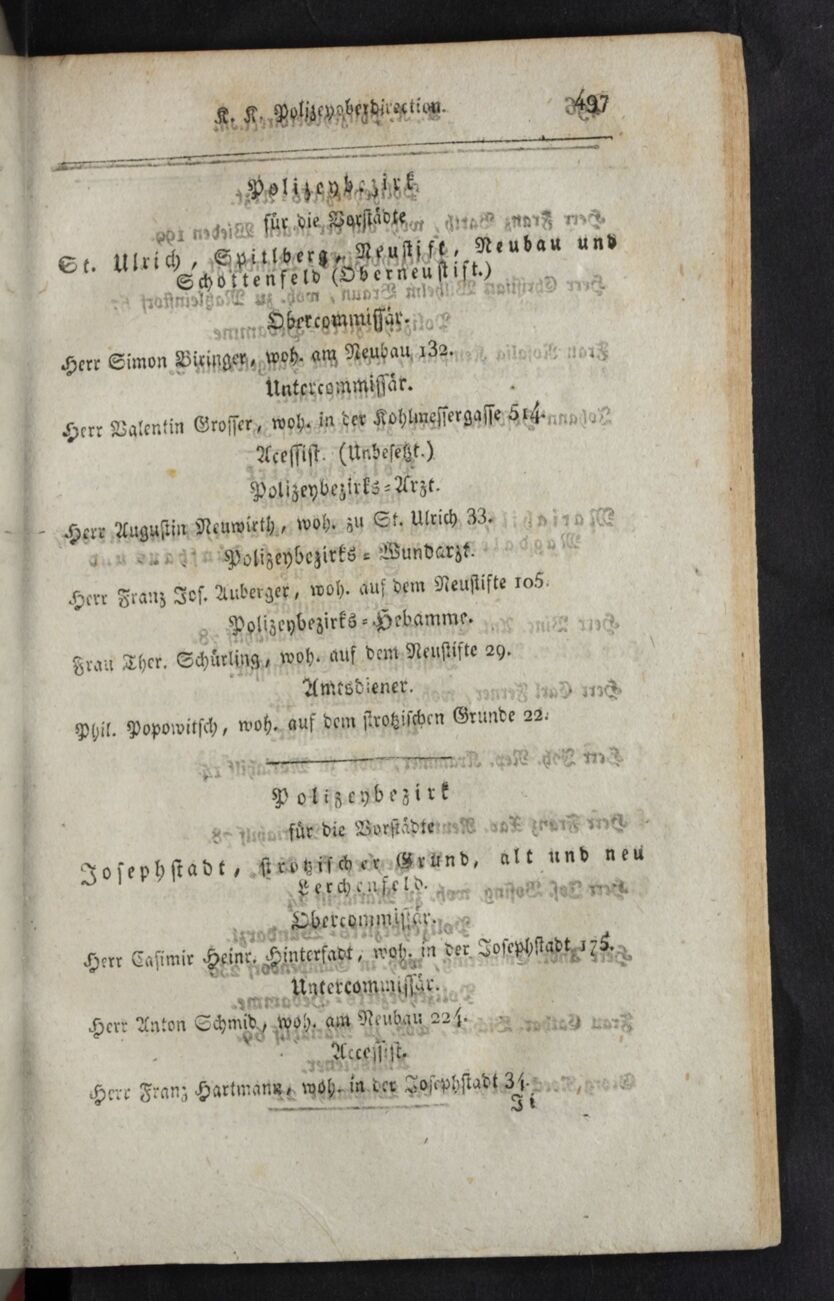 K. K. Polizeyoberdirection. 497
Polizeybezirk
für die Vorstädte
St. Ulrich, Spitlberg, Neustift, Neubau und
Schottenfeld (Oberneustift.)
Obercommissär.
Herr Simon Biringer, woh. am Neubau 132.
Untercommissär.
Herr Valentin Grosser, woh. in der Kohlmessergasse 514.
Acessist. (Unbesetzt.)
Polizeybezirks-Arzt.
Herr Augustin Neuwirth, woh. zu St. Ulrich 33.
Polizeybezirks-Wundarzt.
Herr Franz Jos. Auberger, woh. auf dem Neustifte 105.
Polizeybezirks-Hebamme.
Frau Ther. Schürling, woh. auf dem Neustifte 29.
Amtsdiener.
Phil. Popowitsch, woh. auf dem strotzischen Grunde 22.
Polizeybezirk
für die Vorstädte
Josephstadt, strotzischer Grund, alt und neu
Lerchenfeld.
Obercommissär.
Herr Casimir Heinr. Hinterfadt, woh. in der Josephstadt 175.
Untercommissär.
Herr Anton Schmid, woh. am Neubau 224.
Accessist.
Herr Franz Hartmann, woh. in der Josephstadt 34.
Ji